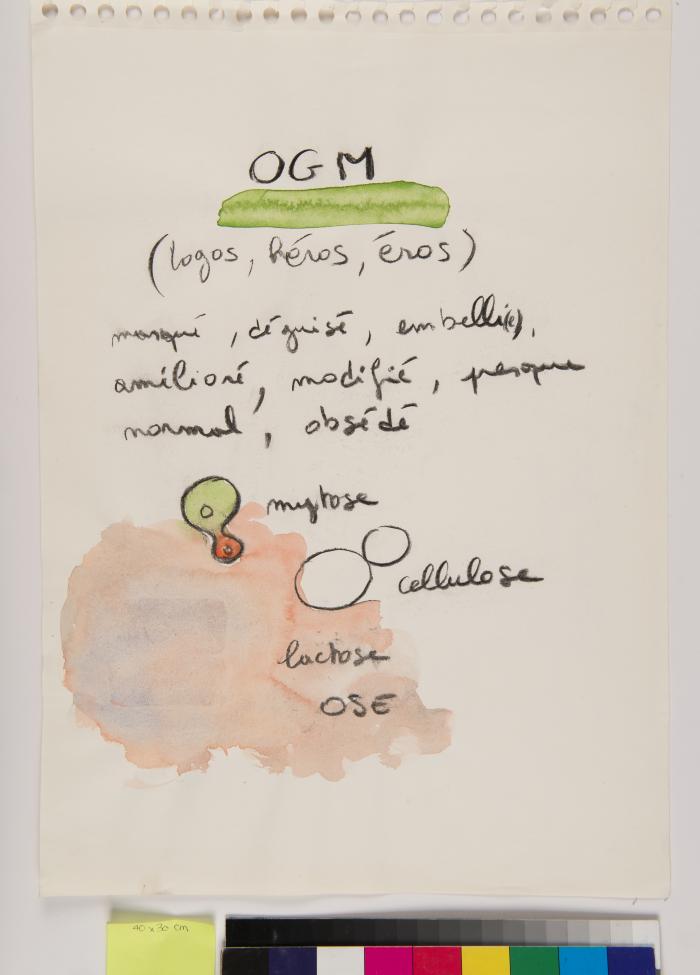 OGM
(logos, héros, éros)
masqué, déguisé, embelli(e),
amélioré, modifié, presque
normal, obsédé
mytose
cellulose
lactose
OSE
40 x 30 cm